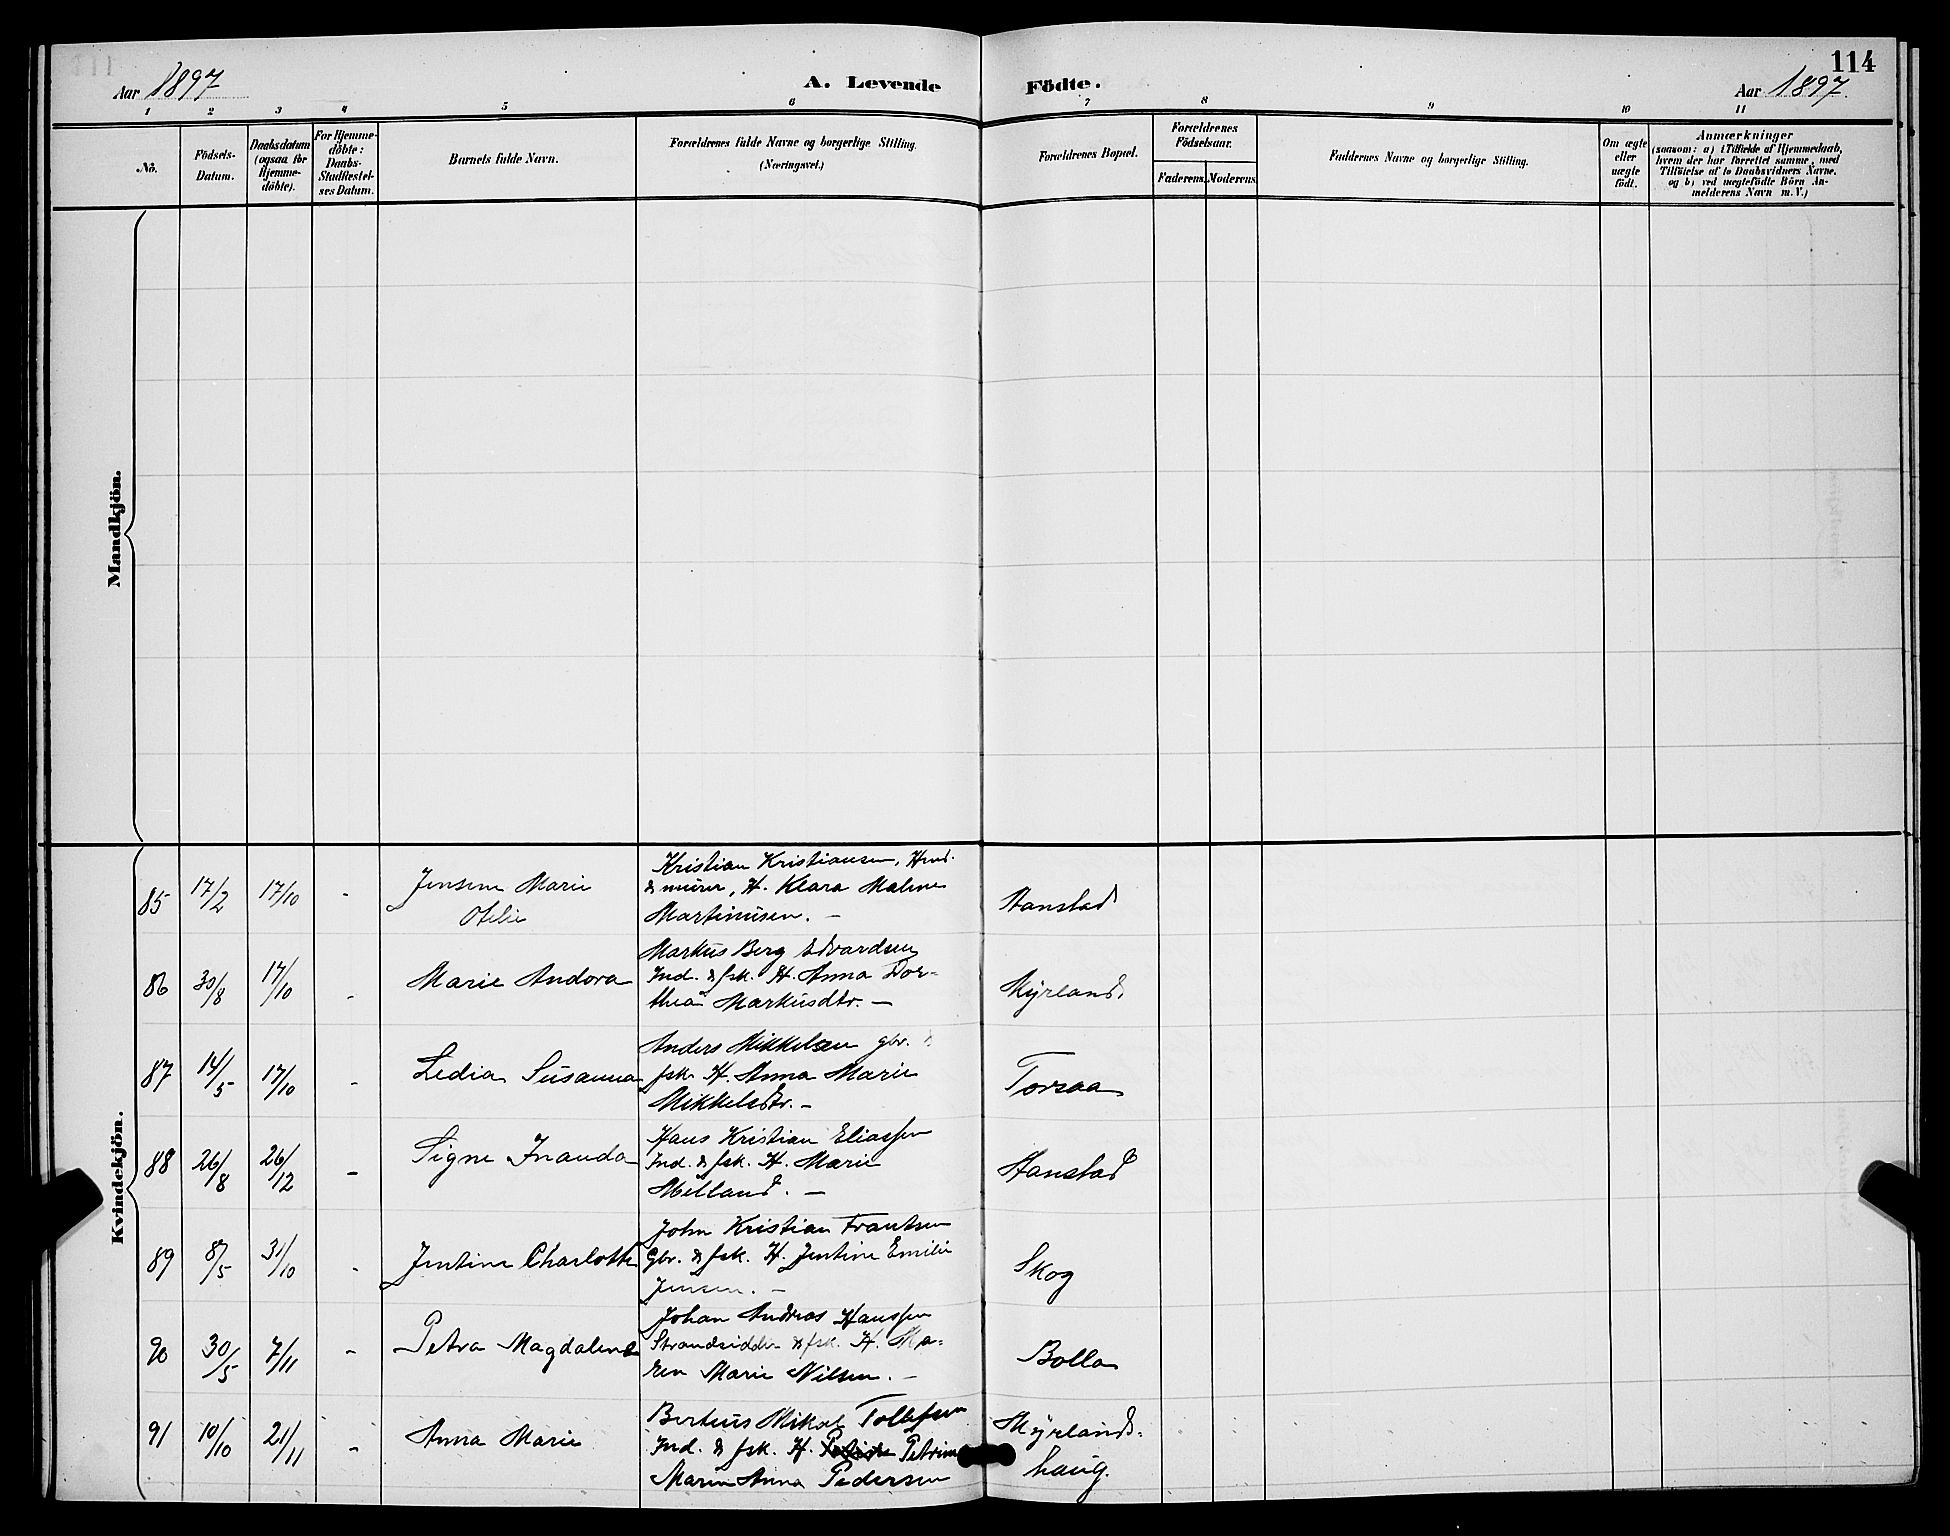 114
Aar 1897
A. Levende Födte.
Aar 1897.
1 2 3 4 5 6 7 8 9 10 11
No.
Födsels-
Datum.
Daabsdatum
(ogsaa for
Hjemme-
döbte).
For Hjemme-
döbte:
Daabs-
Stadfæstel-
ses Datum.
Barnets fulde Navn.
Forældrenes fulde Navne og borgerlige Stilling.
(Næringsvei.)
Forældrenes Bopæl.
Forældrenes
Födselsaar.
Faderens. Moderens.
Faddernes Navne og borgerlige Stilling.
Om ægte
eller
uægte
født.
Anmærkninger
(saasom: a) i Tilfælde af Hjemmedaab,
hvem der har forrettet samme, med
Tilføielse af to Daabsvidners Navne,
og b) ved uægtefödte Börn An-
melderens Navn m. V.)
Mandkjön.
Kvindekjön.
85 17/2 17/10 - Jensine Marie
Otelie
Kristian Kristiansen,
& murer, H. Klara Maline
Martinüsen. -
Hanstad
86 30/8 17/10 - Marie Andora
Markus Berg Edvardsen
Ind. & fsk. H. Anna Dor-
thea Markusdtr. -
Myrland.
87 14/5 17/10 - Ledia Susanna
Anders Mikkelsen gbr.
fsk. H. Anna Marie
Mikkelsdtr. -
Torsaa
88 26/8 26/12 - Signe
Hans Kristian Eliassen
Ind. & fsk. H. Marie
Milland. -
Hanstad
89 8/5 31/10 - Jentine Charlotte
John Kristian Frantsen
Gbr. & fsk. H. Jentine Emilie
Jensen. -
Skog
90 30/5 7/11 - Petra Magdalene
Johan Andreas Hanssen
Strandsidder & fsk. H. Ma-
ren Marie Nilsen. -
Bolla
91 10/10 21/11 - Anna Marie
Berteus Mikal Tollefsen
Ind. & fsk. H. Petrine
Marie Anna Pedersen
Myrlands-
haug.